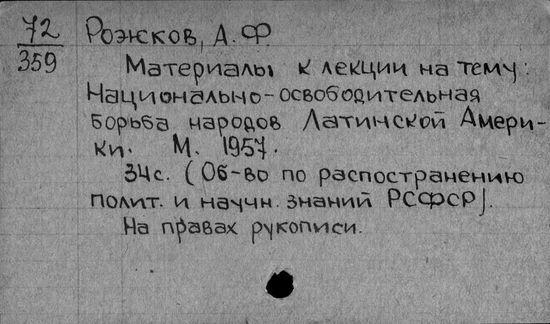 72 Рожков, А. Ф.
359
Материалы к лекции на тему:
Национально-освободительная
борьба народов Латинской Амери-
ки. М. 1957.
34с. (Об-во по распостранению
полит. и научн. знаний РСФСР).
На правах рукописи.